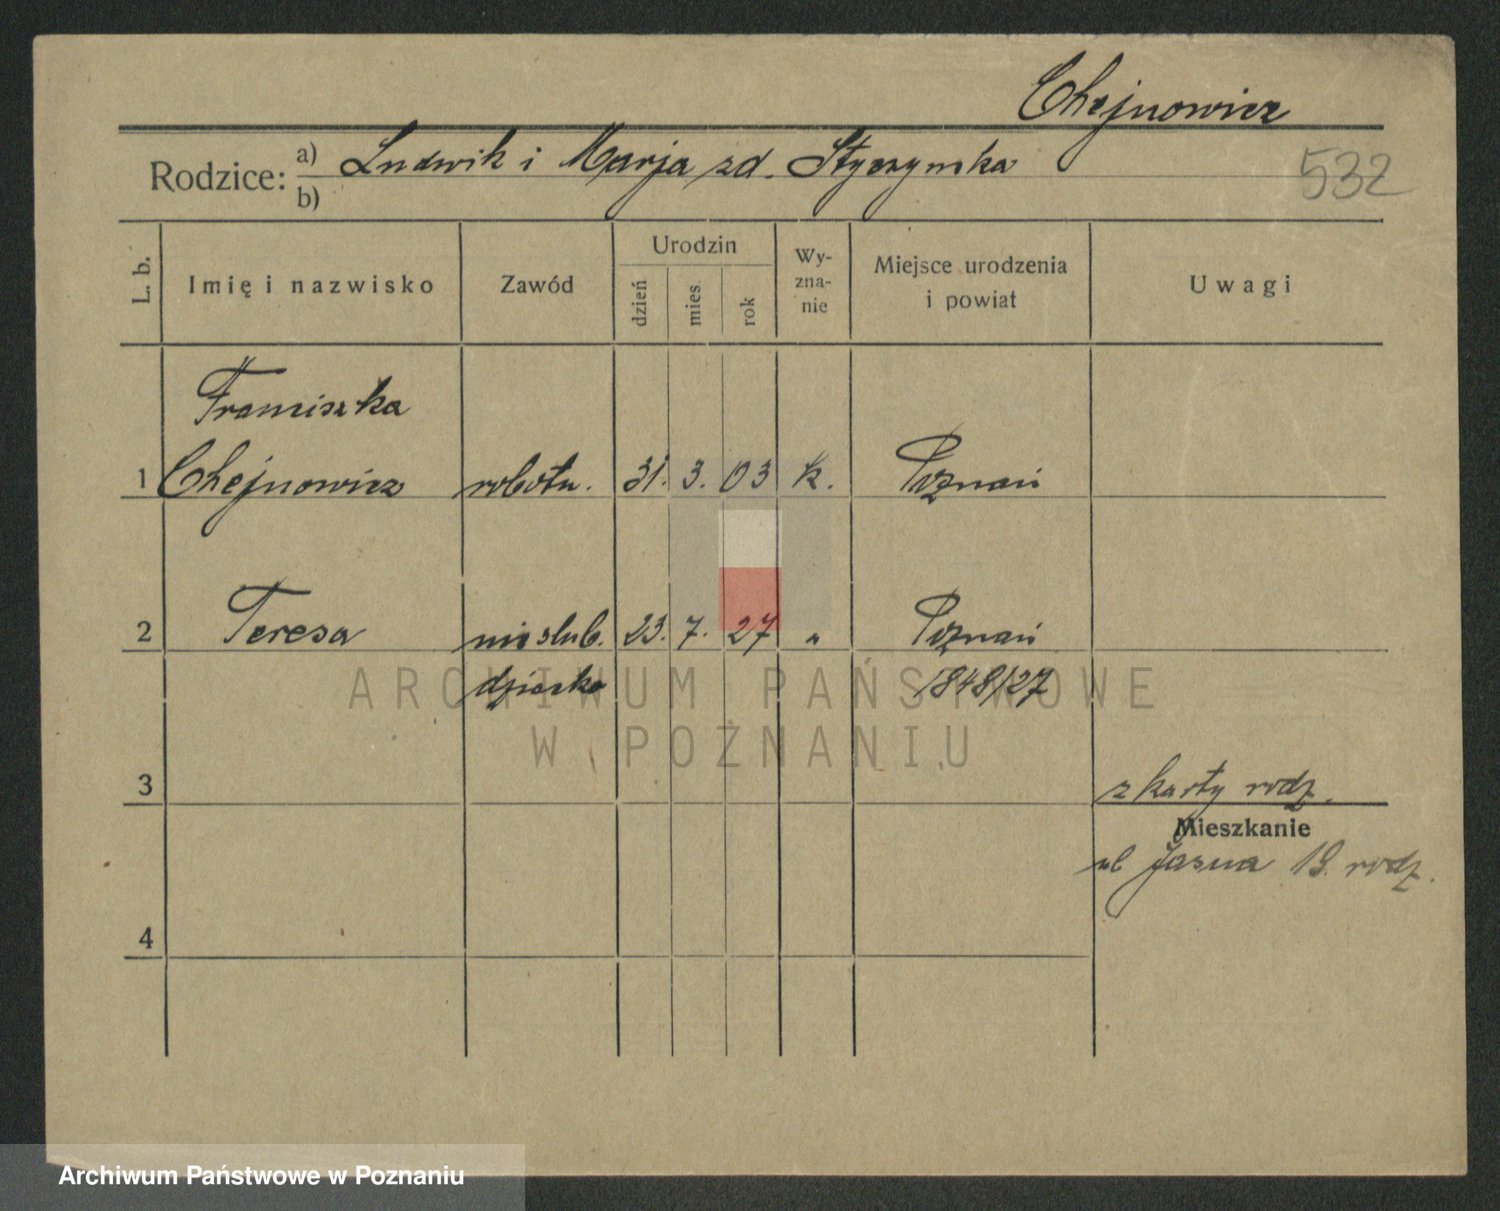 Chejnowicz
Rodzice: a) Ludwik i Marja zd. Styczynska
b)
532
L. b.
Imię i nazwisko
Zawód
Urodzin
dzień
mies.
rok
Wy-
zna-
nie
Miejsce urodzenia
i powiat
Uwagi
Franciszka
1 Chejnowicz robotn. 31. 3. 03 k. Poznań
2 Teresa nieslub. 23. 7. 27 " Poznań
dziecko 1848/27
ARCHIWUM PAŃSTWOWE
W POZNANIU
3
z karty rodz.
Mieszkanie
ul Jasna 19. rodz.
4
Archiwum Państwowe w Poznaniu